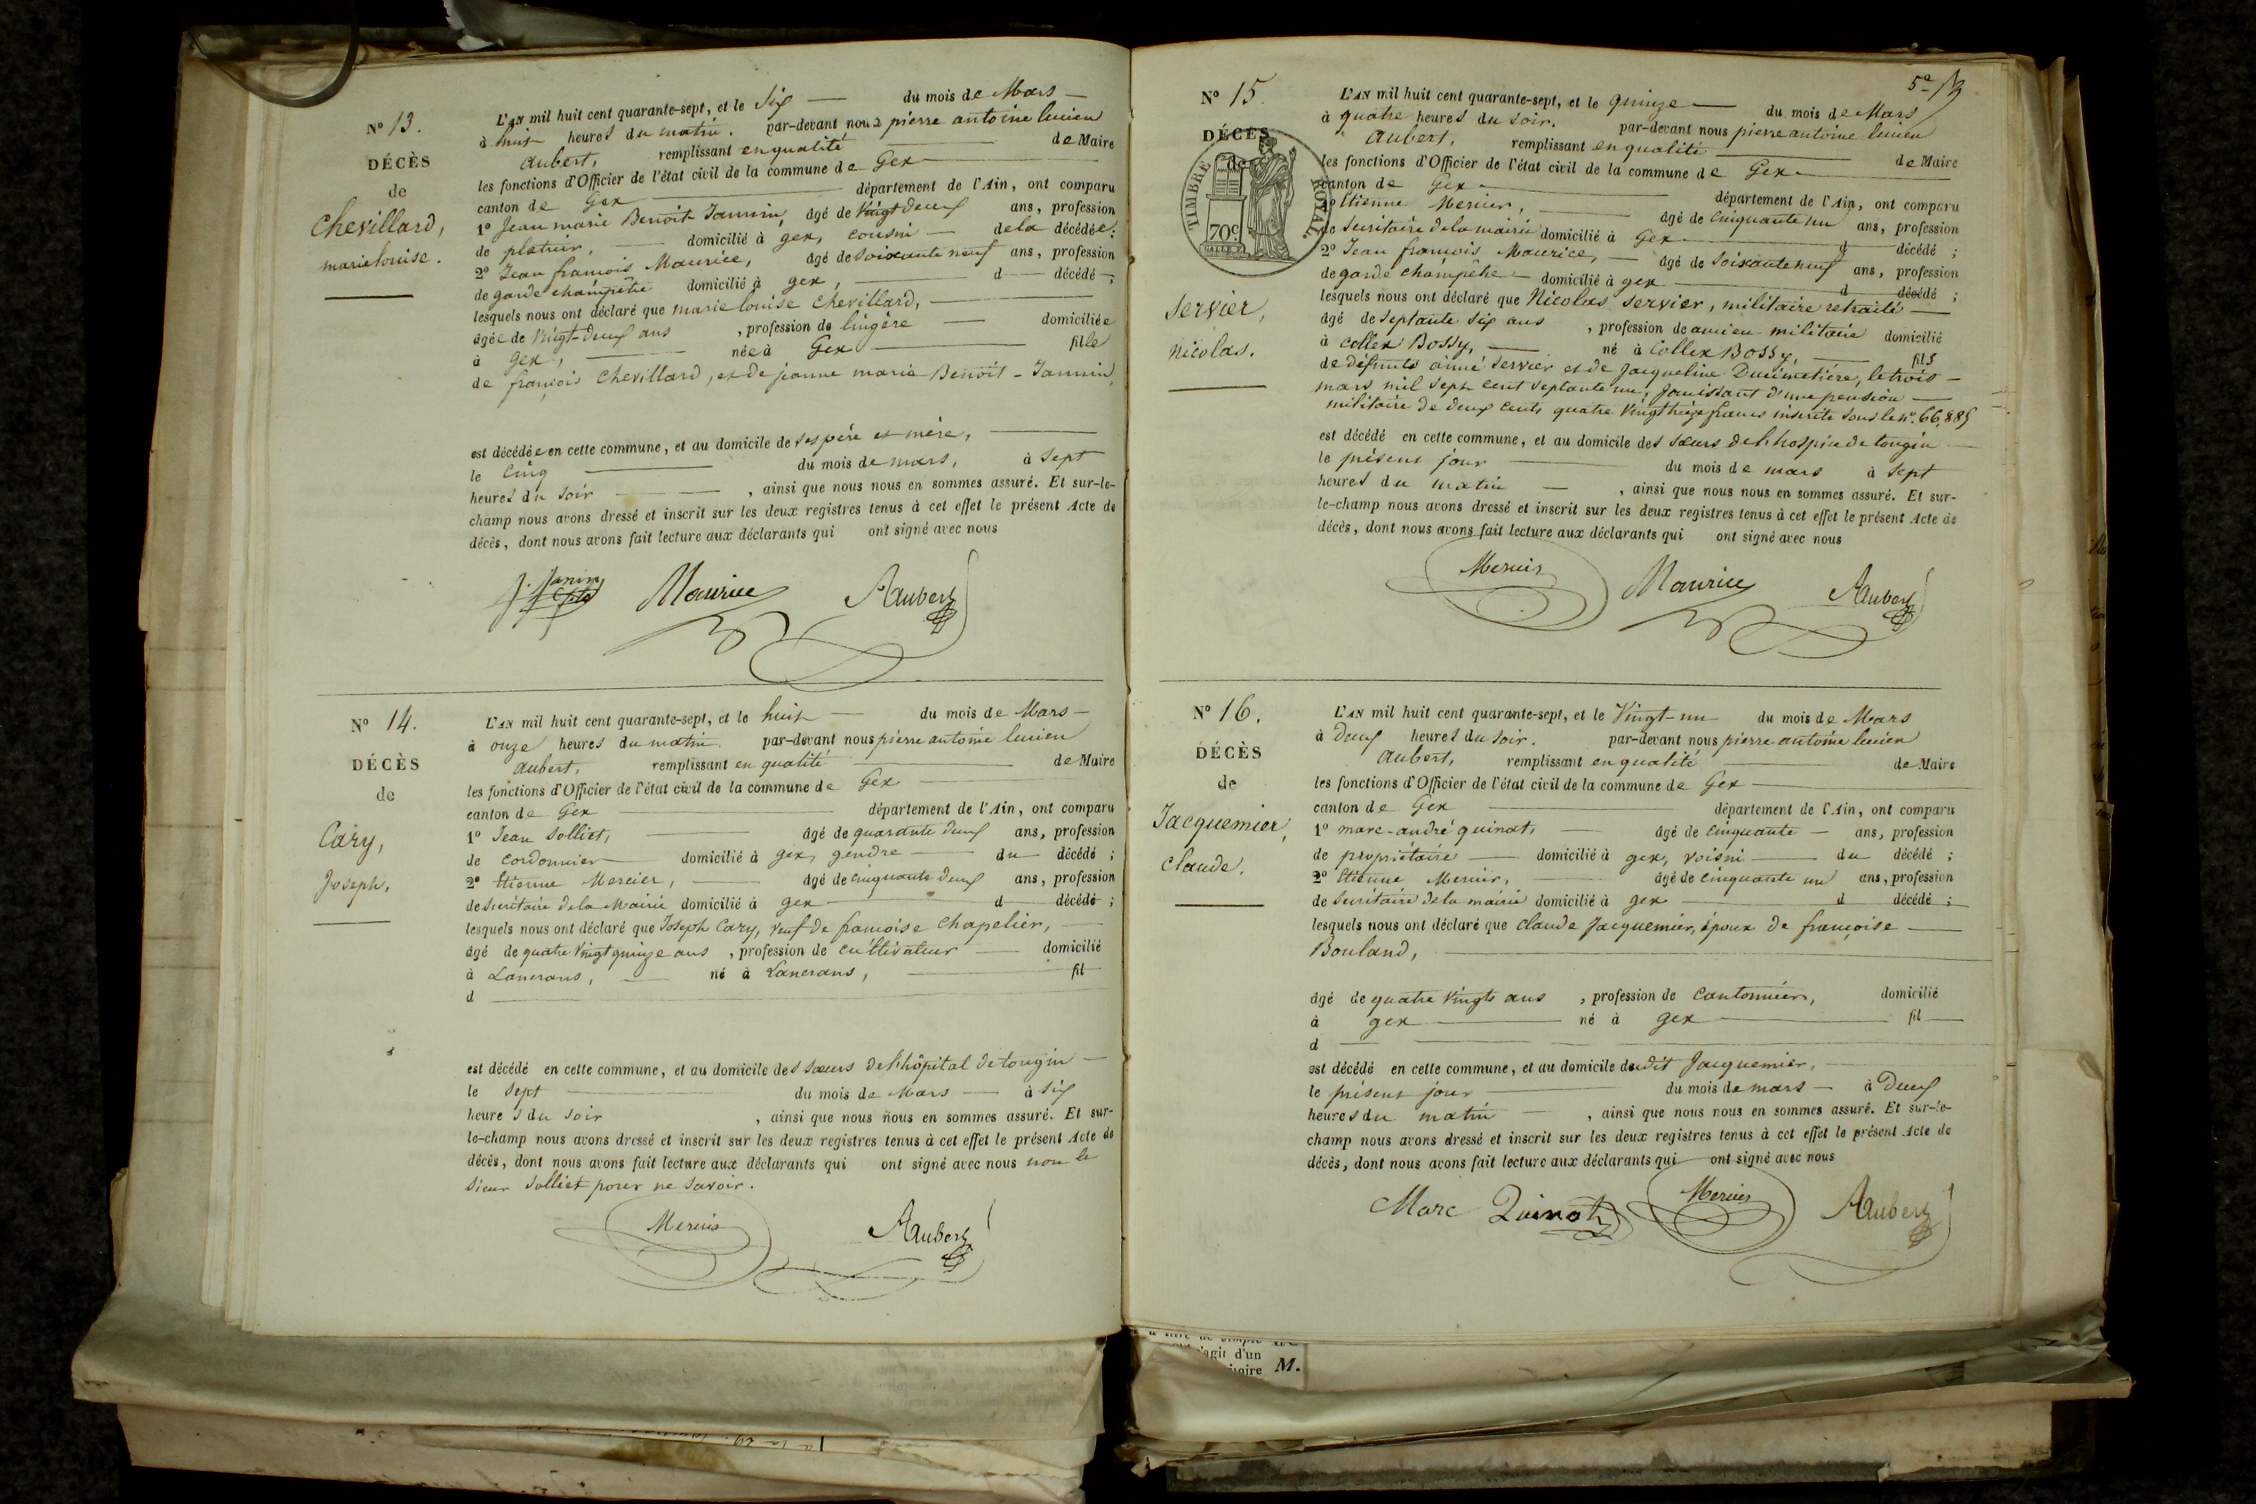 Nº 13.
DÉCÈS
de
Chevillard,
marie louise.
L'AN mil huit cent quarante-sept, et le Six du mois de Mars
à huit heures du matin. par-devant nous pierre antoine lucien
aubert, remplissant en qualité de Maire
les fonctions d'Officier de l'état civil de la commune de Gex
canton de Gex département de l'Ain, ont comparu
1º Jean marie Benoit Jannin, âgé de Vingt deux ans, profession
de platrier, domicilié à gex, cousin de la décédée;
2º Jean françois Maurice, âgé de Soixante neuf ans, profession
de garde champêtre domicilié à gex, d décédé;
lesquels nous ont déclaré que marie louise Chevillard,
âgée de Vingt-deux ans, profession de lingère domiciliée
à Gex, née à Gex fille
de françois Chevillard, et de jeanne marie Benoit-Jannin,
est décédée en cette commune, et au domicile de ses père et mère,
le Cinq du mois de mars, à Sept
heures du Soir, ainsi que nous nous en sommes assuré. Et sur-le-
champ nous avons dressé et inscrit sur les deux registres tenus à cet effet le présent Acte de
décès, dont nous avons fait lecture aux déclarants qui ont signé avec nous
Maurice Aubert
Nº 14.
DÉCÈS
de
Cary,
Joseph,
L'AN mil huit cent quarante-sept, et le huit du mois de Mars
à onze heures du matin. par-devant nous pierre antoine lucien
aubert, remplissant en qualité de Maire
les fonctions d'Officier de l'état civil de la commune de Gex
canton de Gex département de l'Ain, ont comparu
1º Jean Solliet, âgé de quarante deux ans, profession
de Cordonnier domicilié à gex, gendre du décédé;
2º Etienne Mercier, âgé de cinquante deux ans, profession
de Secrétaire de la Mairie domicilié à gex d décédé;
lesquels nous ont déclaré que Joseph Cary, Veuf de françoise Chapelier,
âgé de quatre Vingt quinze ans, profession de cultivateur domicilié
à Lancrans, né à Lancrans, fil
d
est décédé en cette commune, et au domicile des Sœurs de l'hôpital de tougin
le Sept du mois de Mars à Six
heures du Soir, ainsi que nous nous en sommes assuré. Et sur-
le-champ nous avons dressé et inscrit sur les deux registres tenus à cet effet le présent Acte de
décès, dont nous avons fait lecture aux déclarants qui ont signé avec nous non le
Sieur Solliet pour ne Savoir.
Mercier Aubert
Nº 15.
DÉCÈS
de
TIMBRE ROYAL
70c
Servier,
nicolas.
L'AN mil huit cent quarante-sept, et le quinze du mois de Mars
à quatre heures du Soir. par-devant nous pierre antoine lucien
aubert, remplissant en qualité de Maire
les fonctions d'Officier de l'état civil de la commune de Gex
canton de Gex département de l'Ain, ont comparu
1º Etienne Mercier, âgé de Cinquante un ans, profession
de Secrétaire de la mairie domicilié à Gex d décédé;
2º Jean françois Maurice, âgé de Soixante neuf ans, profession
de garde champêtre domicilié à gex d décédé;
lesquels nous ont déclaré que Nicolas Servier, militaire retraité
âgé de Septante Six ans, profession de ancien militaire domicilié
à Collex Bossy, né à Collex Bossy, fils
de défunts aimé Servier et de Jacqueline Ducimetière, le trois
mars mil Sept cent Septante un, Jouissant d'une pension
militaire de deux cents quatre Vingt treize francs inscrite Sous le nº. 66,885
est décédé en cette commune, et au domicile des Sœurs de l'hospice de tougin
le présent jour du mois de mars à Sept
heures du matin, ainsi que nous nous en sommes assuré. Et sur-
le-champ nous avons dressé et inscrit sur les deux registres tenus à cet effet le présent Acte de
décès, dont nous avons fait lecture aux déclarants qui ont signé avec nous
Mercier Maurice Aubert
Nº 16.
DÉCÈS
de
Jacquemier,
Claude.
L'AN mil huit cent quarante-sept, et le Vingt-un du mois de Mars
à Deux heures du Soir. par-devant nous pierre antoine lucien
aubert, remplissant en qualité de Maire
les fonctions d'Officier de l'état civil de la commune de Gex
canton de Gex département de l'Ain, ont comparu
1º marc-andré quinat, âgé de Cinquante ans, profession
de propriétaire domicilié à gex, voisin du décédé;
2º Etienne Mercier, âgé de Cinquante un ans, profession
de Secrétaire de la mairie domicilié à gex d décédé;
lesquels nous ont déclaré que Claude Jacquemier, époux de françoise
Bouland,
âgé de quatre Vingts ans, profession de Cantonnier, domicilié
à gex né à gex fil
d
est décédé en cette commune, et au domicile dudit Jacquemier,
le présent jour du mois de mars à Deux
heures du matin, ainsi que nous nous en sommes assuré. Et sur-le-
champ nous avons dressé et inscrit sur les deux registres tenus à cet effet le présent Acte de
décès, dont nous avons fait lecture aux déclarants qui ont signé avec nous
Marc Quinat Mercier Aubert
agit d'un
M.